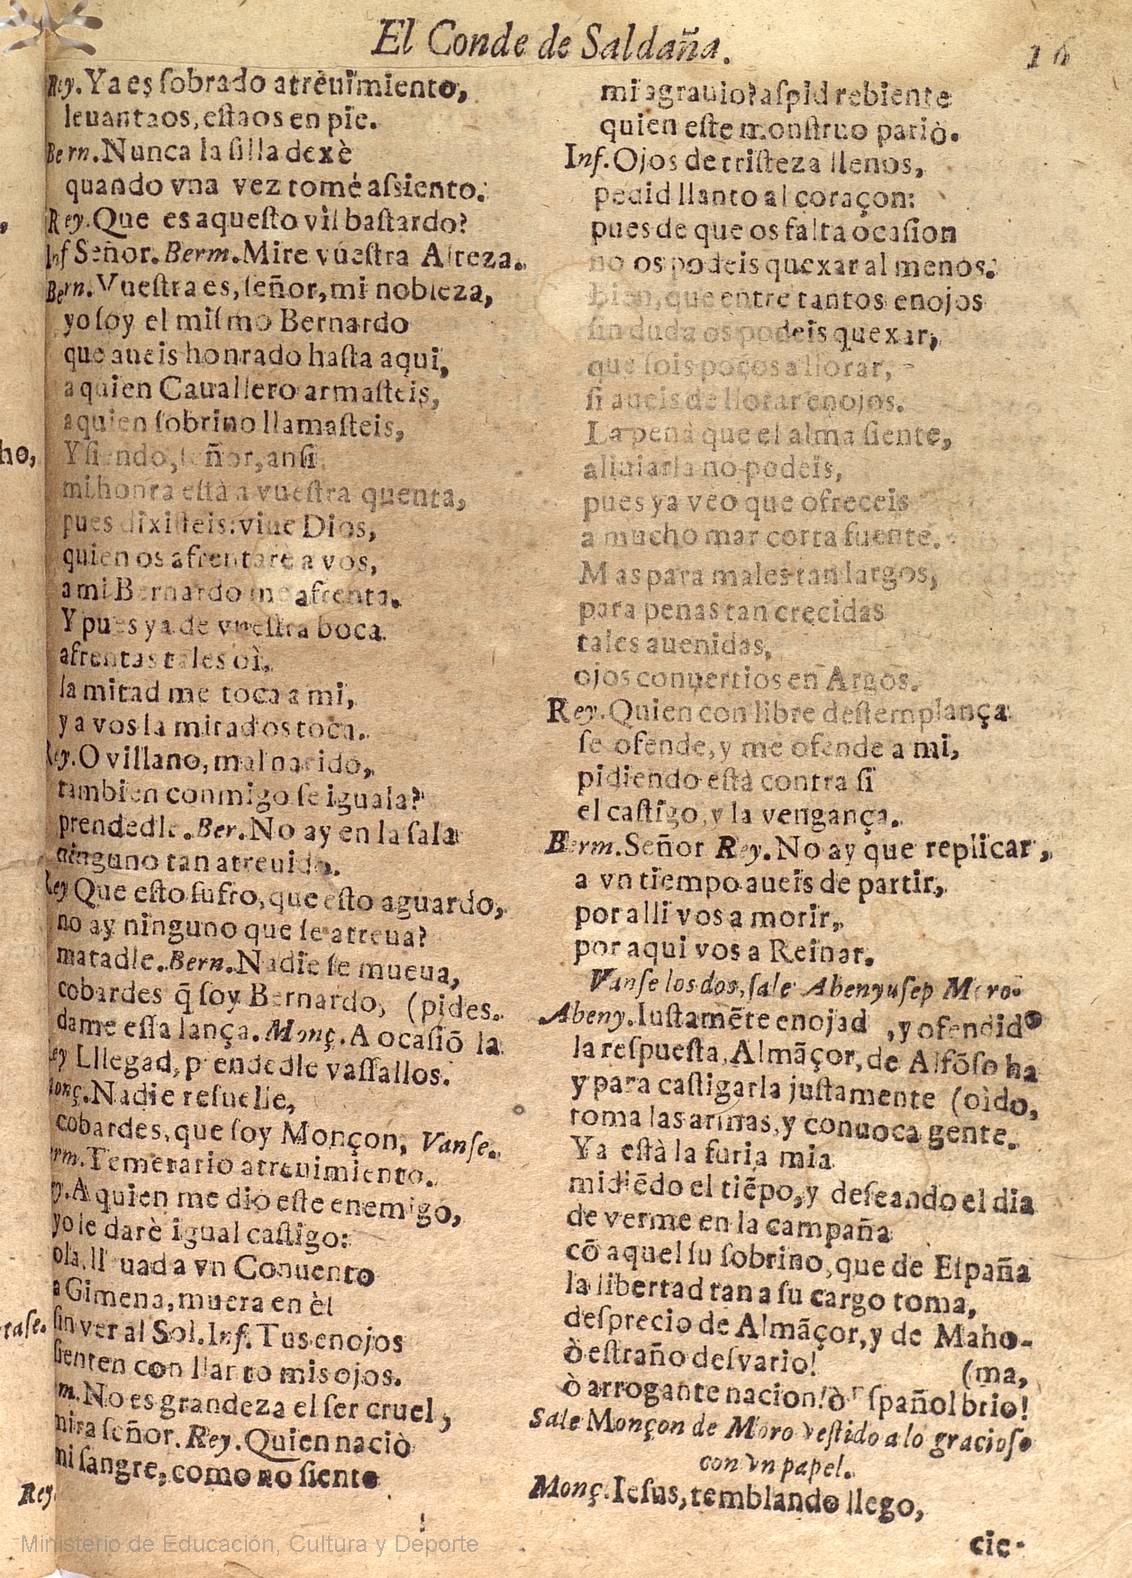 El Conde de Saldaña.
16
Rey. Ya es ſobrado atrèuimiento,
leuantaos, eſtaos en pie.
Bern. Nunca la ſilla dexè
quando vna vez tomè aſsiento.
Rey. Que es aqueſto vil baſtardo?
Inf Señor. Berm. Mire vueſtra Alteza.
Bern. Vueſtra es, ſeñor, mi nobleza,
yo ſoy el miſmo Bernardo
que aueis honrado haſta aqui,
a quien Cauallero armaſteis,
a quien ſobrino llamaſteis,
Y ſiendo, ſeñor, anſi
mi honra eſtà a vueſtra quenta,
pues dixiſteis: viue Dios,
quien os afrentare a vos,
a mi Bernardo me afrenta.
Y pues ya de vueſtra boca
afrentas tales oì,
la mitad me toca a mi,
y a vos la mitad os toca.
Rey. O villano, mal nacido,
tambien conmigo ſe iguala?
prendedle. Ber. No ay en la ſala
ninguno tan atreuido.
Rey Que eſto ſufro, que eſto aguardo,
no ay ninguno que ſe atreua?
matadle. Bern. Nadie ſe mueua,
cobardes q̃ ſoy Bernardo, (pides.
dame eſſa lança. Monç. A ocaſiõ la
Rey Lllegad, prendedle vaſſallos.
Monç. Nadie reſuelle,
cobardes, que ſoy Monçon, Vanſe.
Berm. Temerario atreuimiento.
Rey. A quien me diò eſte enemigo,
yo le darè igual caſtigo:
ola, lleuad a vn Conuento
a Gimena, muera en èl
ſin ver al Sol. Inf. Tus enojos
ſienten con llanto mis ojos.
Berm. No es grandeza el ſer cruel,
mira ſeñor. Rey. Quien naciò
mi ſangre, como no ſiente
mi agrauio? aſpid rebiente
quien eſte monſtruo pariò.
Inf. Ojos de triſteza llenos,
pedid llanto al coraçon:
pues de que os falta ocaſion
no os podeis quexar al menos.
Bien, que entre tantos enojos
ſin duda os podeis quexar,
que ſois pocos a llorar,
ſi aueis de llorar enojos.
La pena que el alma ſiente,
aliuiarla no podeis,
pues ya veo que ofreceis
a mucho mar corta fuente.
Mas para males tan largos,
para penas tan crecidas
tales auenidas,
ojos conuertios en Argos.
Rey. Quien con libre deſtemplança
ſe ofende, y me ofende a mi,
pidiendo eſtà contra ſi
el caſtigo, y la vengança.
Berm. Señor Rey. No ay que replicar,
a vn tiempo aueis de partir,
por alli vos a morir,
por aqui vos a Reinar.
Vanſe los dos, ſale Abenyuſep Moro.
Abeny. Iuſtamẽte enojado, y ofendido
la reſpueſta, Almãçor, de Alfõſo ha
y para caſtigarla juſtamente (oìdo,
toma las armas, y conuoca gente.
Ya eſtà la furia mia
midiẽdo el tiẽpo, y deſeando el dia
de verme en la campaña
cõ aquel ſu ſobrino, que de Eſpaña
la libertad tan a ſu cargo toma,
deſprecio de Almãçor, y de Maho-
ò eſtraño deſvario! (ma,
ò arrogante nacion! ò Eſpañol brio!
Sale Monçon de Moro veſtido a lo gracioſo
con vn papel.
Monç. Ieſus, temblando llego,
cie-
ho,
taſe.
Rey
Ministerio de Educación, Cultura y Deporte